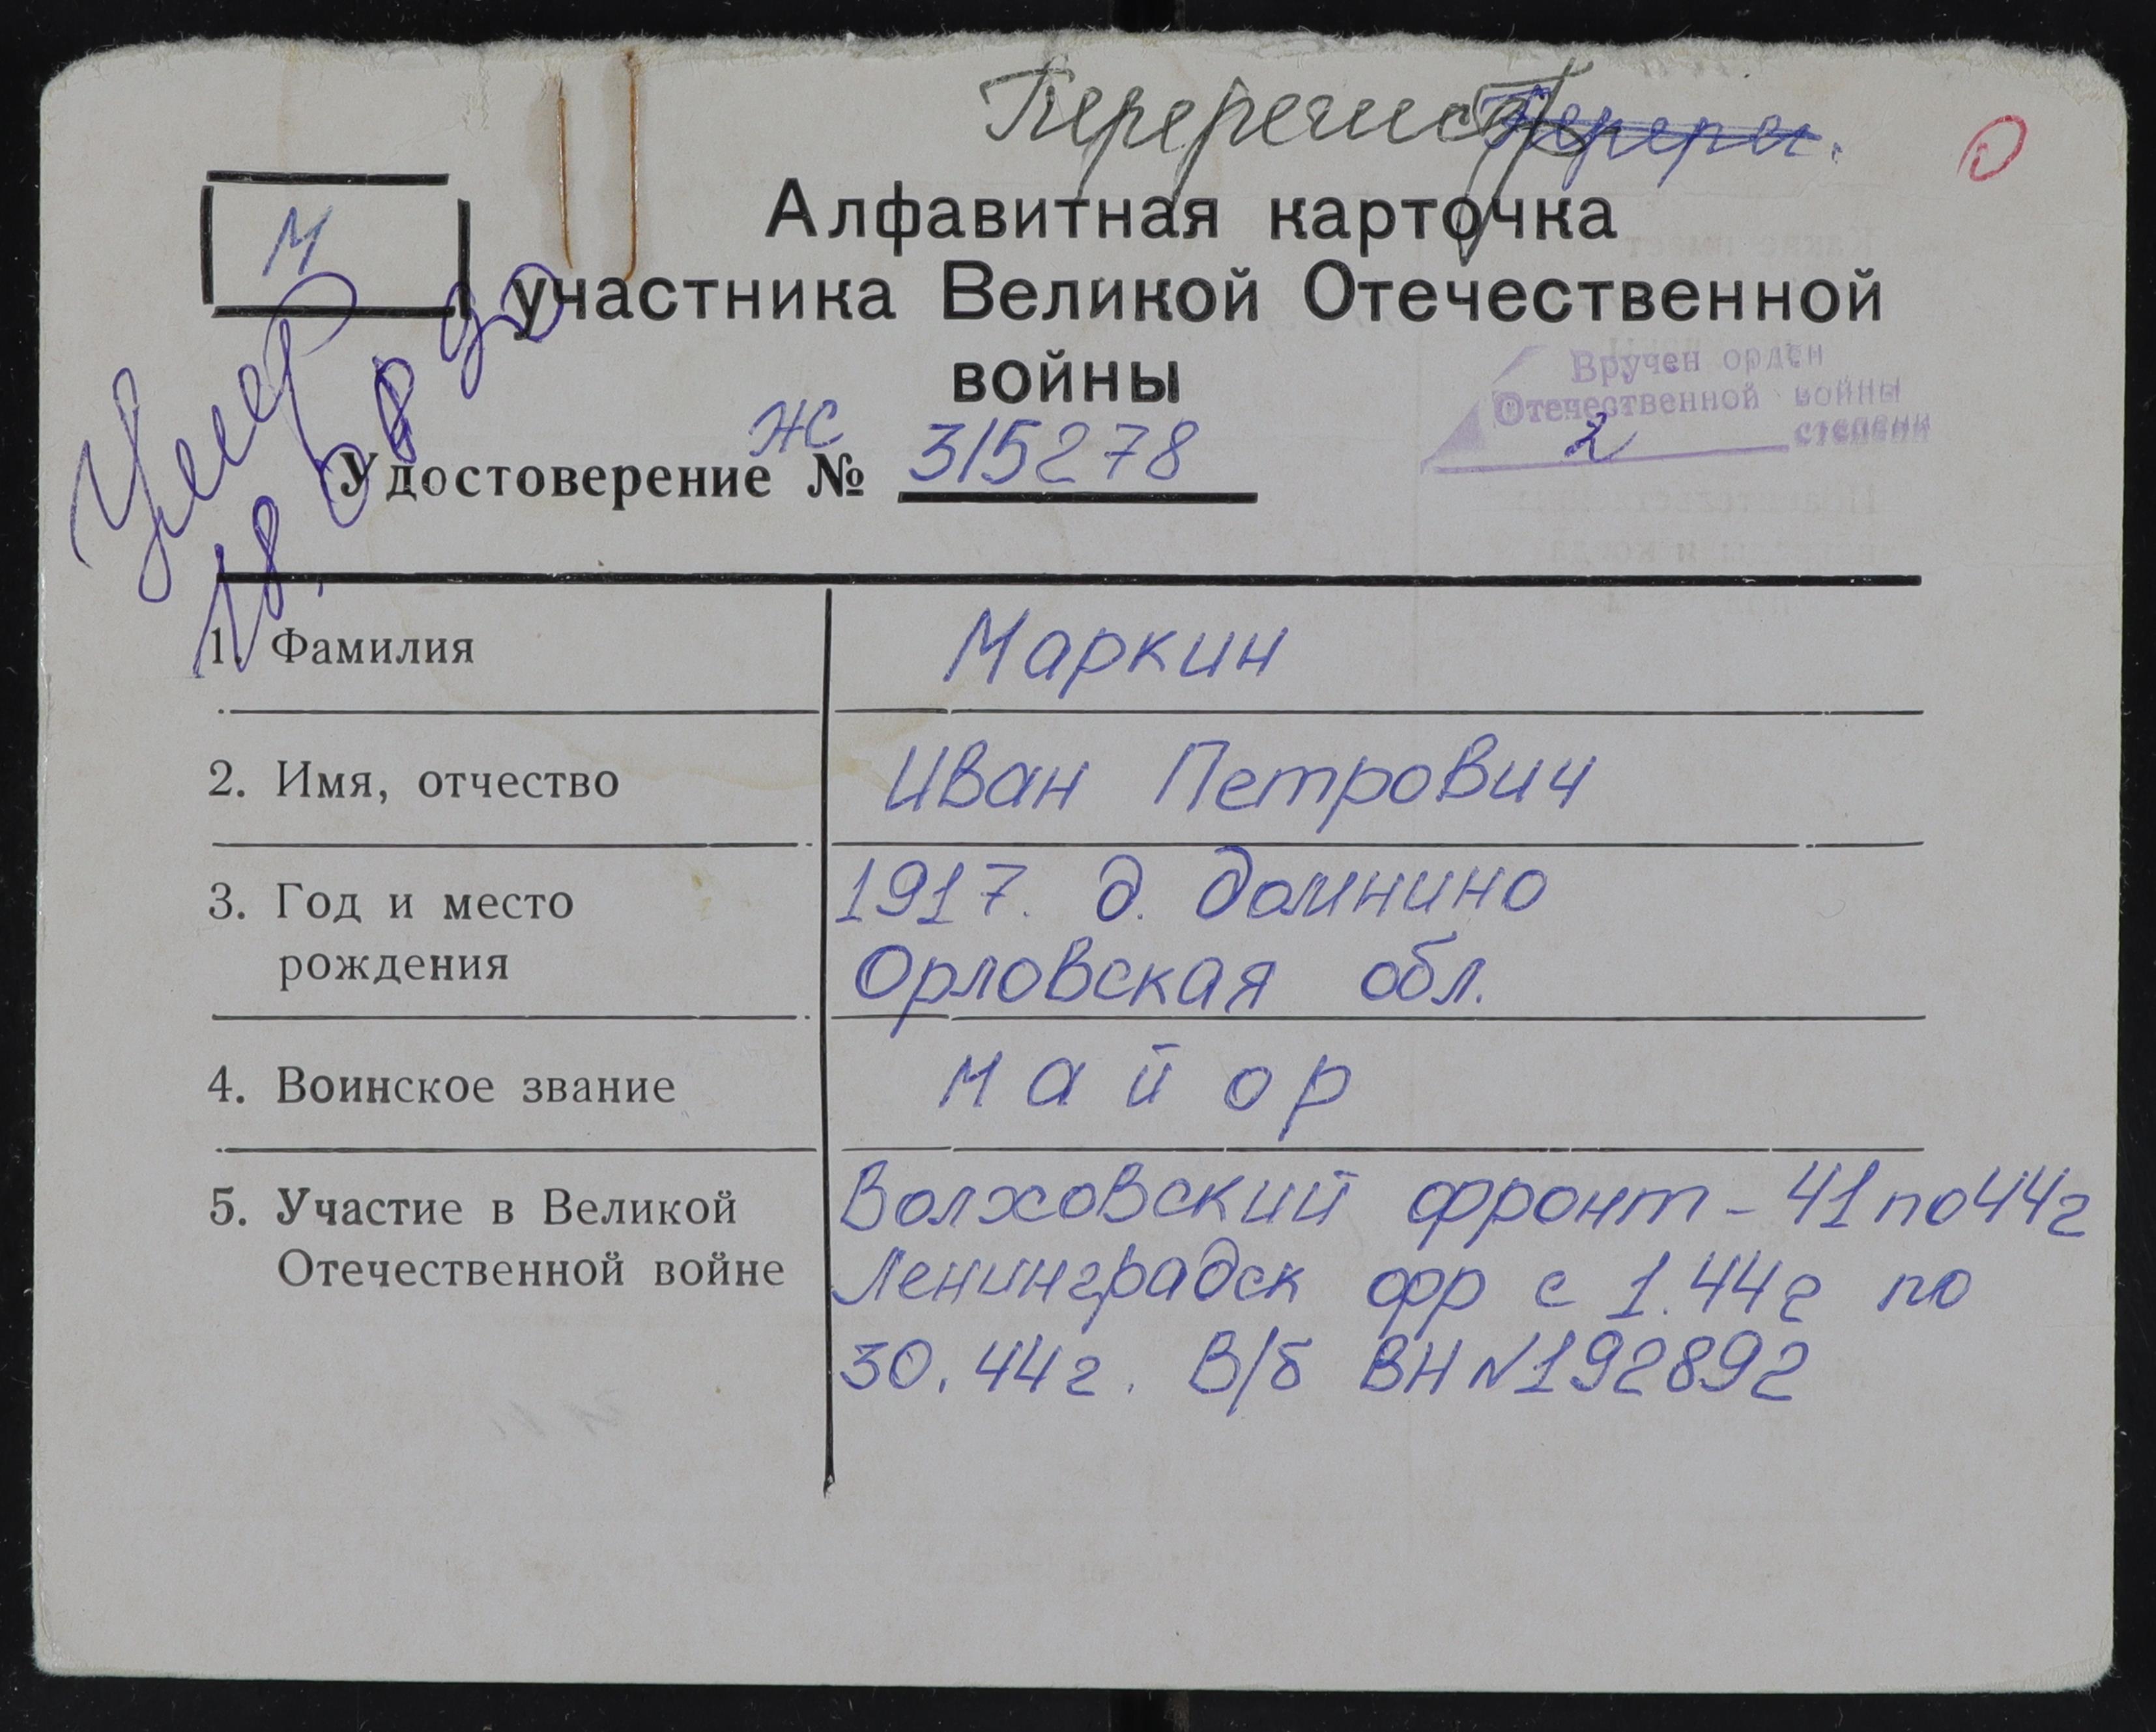 Перерегистр
Перерег.
О
М
Алфавитная карточка
участника Великой Отечественной
войны
Умер
18.08.90
Вручен орден
Отечественной войны
2 степени
ЖС
Удостоверение № 315278
1. Фамилия Маркин
2. Имя, отчество Иван Петрович
3. Год и место 1917. д. Домнино
рождения Орловская обл.
4. Воинское звание майор
5. Участие в Великой Волховский фронт - 41 по 44г
Отечественной войне Ленинградск фр с 1.44г по
30.44г. В/б ВН №192892